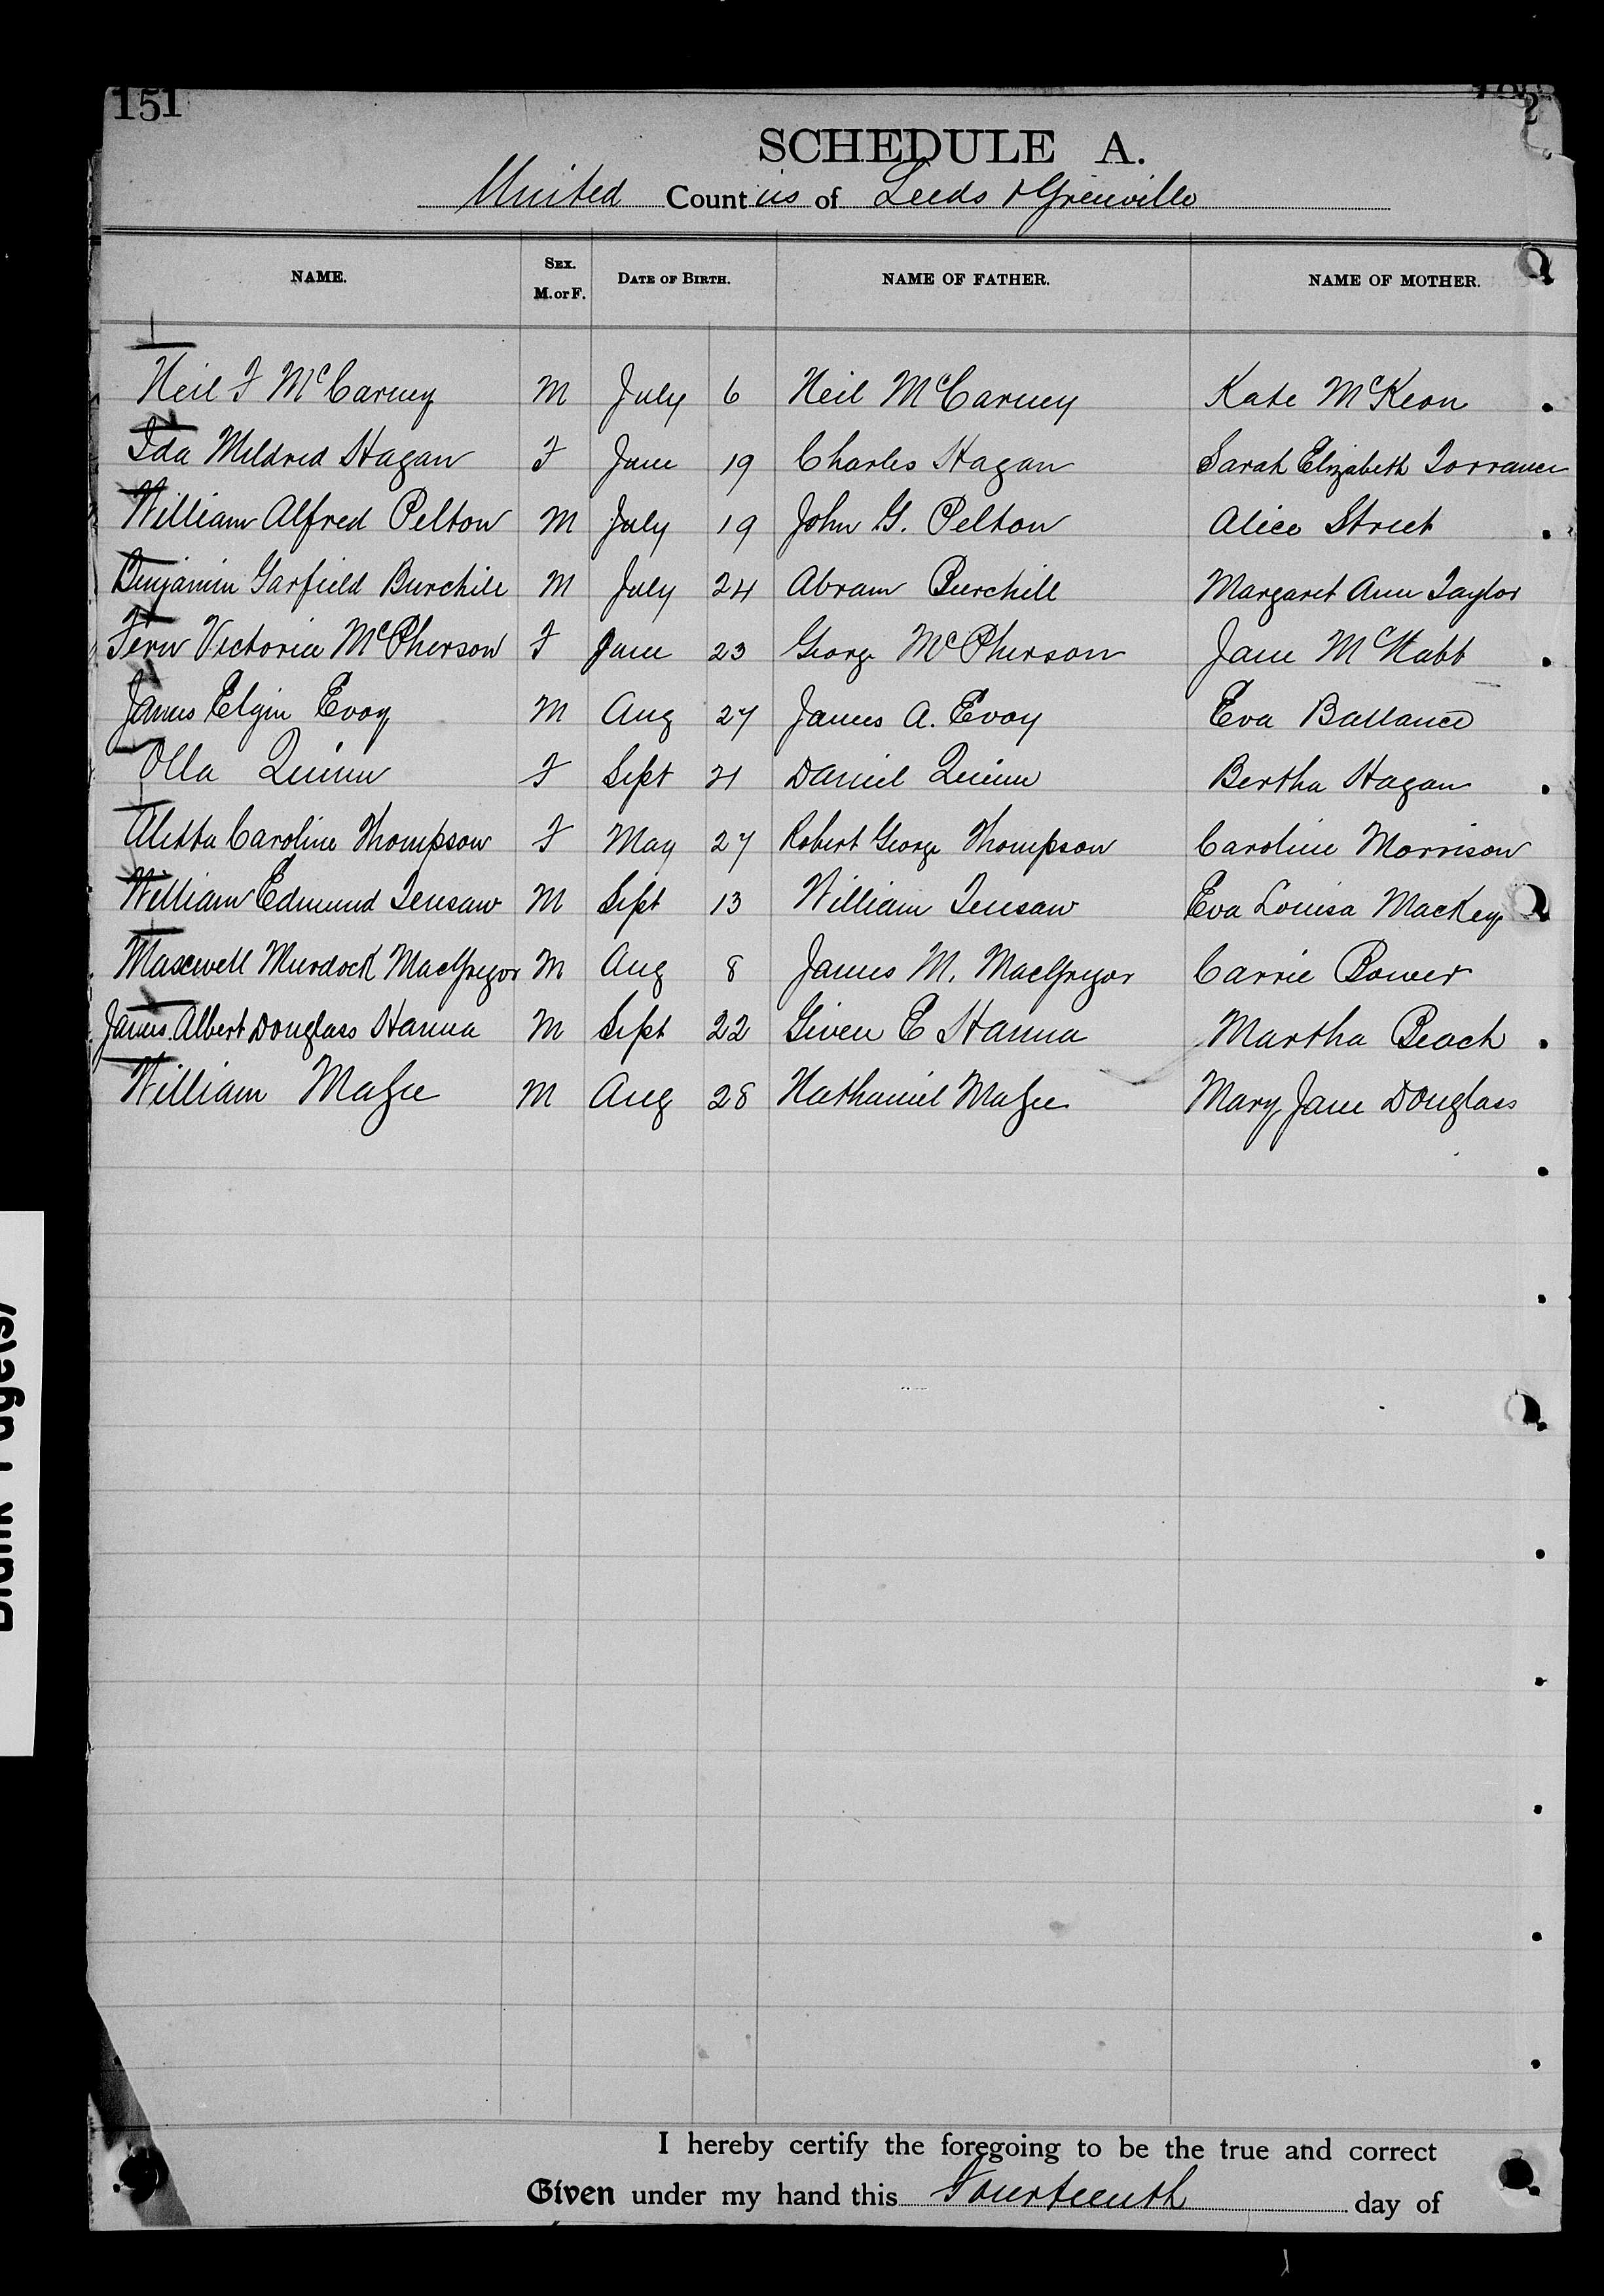 151
SCHEDULE A.
United Counties of Leeds & Grenville
NAME. SEX. M. or F. DATE OF BIRTH. NAME OF FATHER. NAME OF MOTHER.
Neil F McCarney M July 6 Neil McCarney Kate McKeon
Ida Mildred Hagan F June 19 Charles Hagan Sarah Elizabeth Torrance
William Alfred Pelton M July 19 John G. Pelton Alice Street
Benjamin Garfield Burchill M July 24 Abram Burchill Margaret Ann Taylor
Fern Victoria McPherson F June 23 George McPherson Jane McNabb
James Elgin Evoy M Aug 27 James A. Evoy Eva Ballance
Olla Quinn F Sept 21 Daniel Quinn Bertha Hagan
Aletta Caroline Thompson F May 27 Robert George Thompson Caroline Morrison
William Edmund Tensaw M Sept 13 William Tensaw Eva Louisa Mackey
Maxwell Murdock MacGregor M Aug 8 James M. MacGregor Carrie Bower
James Albert Douglass Hanna M Sept 22 Given E Hanna Martha Beach
William Magee M Aug 28 Nathaniel Magee Mary Jane Douglass
I hereby certify the foregoing to be the true and correct
Given under my hand this Fourteenth day of